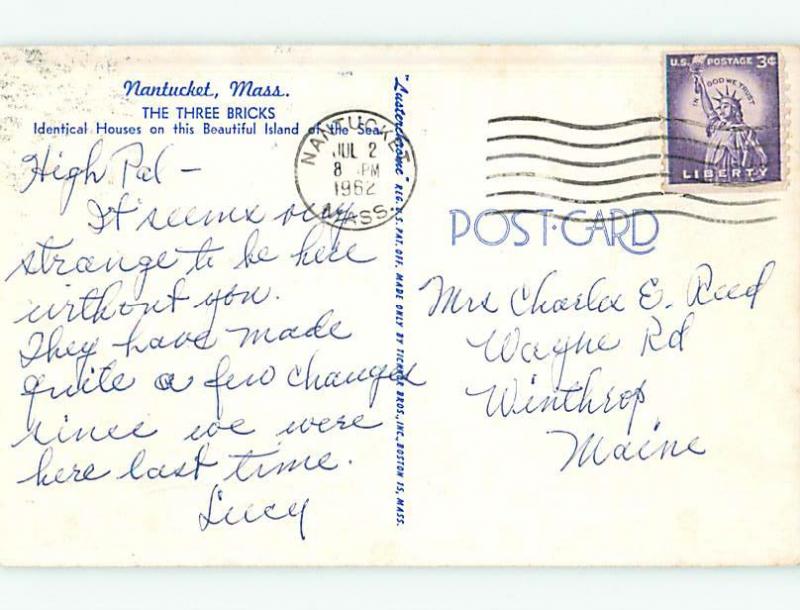 Nantucket, Mass.
THE THREE BRICKS
Identical Houses on this Beautiful Island of the Sea.
High Pal —
It seems very
strange to be here
without you.
They have made
quite a few changes
since we were
here last time.
Lucy
"Lusterchrome" REG. U.S. PAT. OFF. MADE ONLY BY TICHNOR BROS., INC., BOSTON 15, MASS.
NANTUCKET
JUL 2
8 PM
1962
MASS.
U.S. POSTAGE 3¢
IN GOD WE TRUST
LIBERTY
POST-CARD
Mrs Charles E. Reed
Wayne Rd
Winthrop
Maine